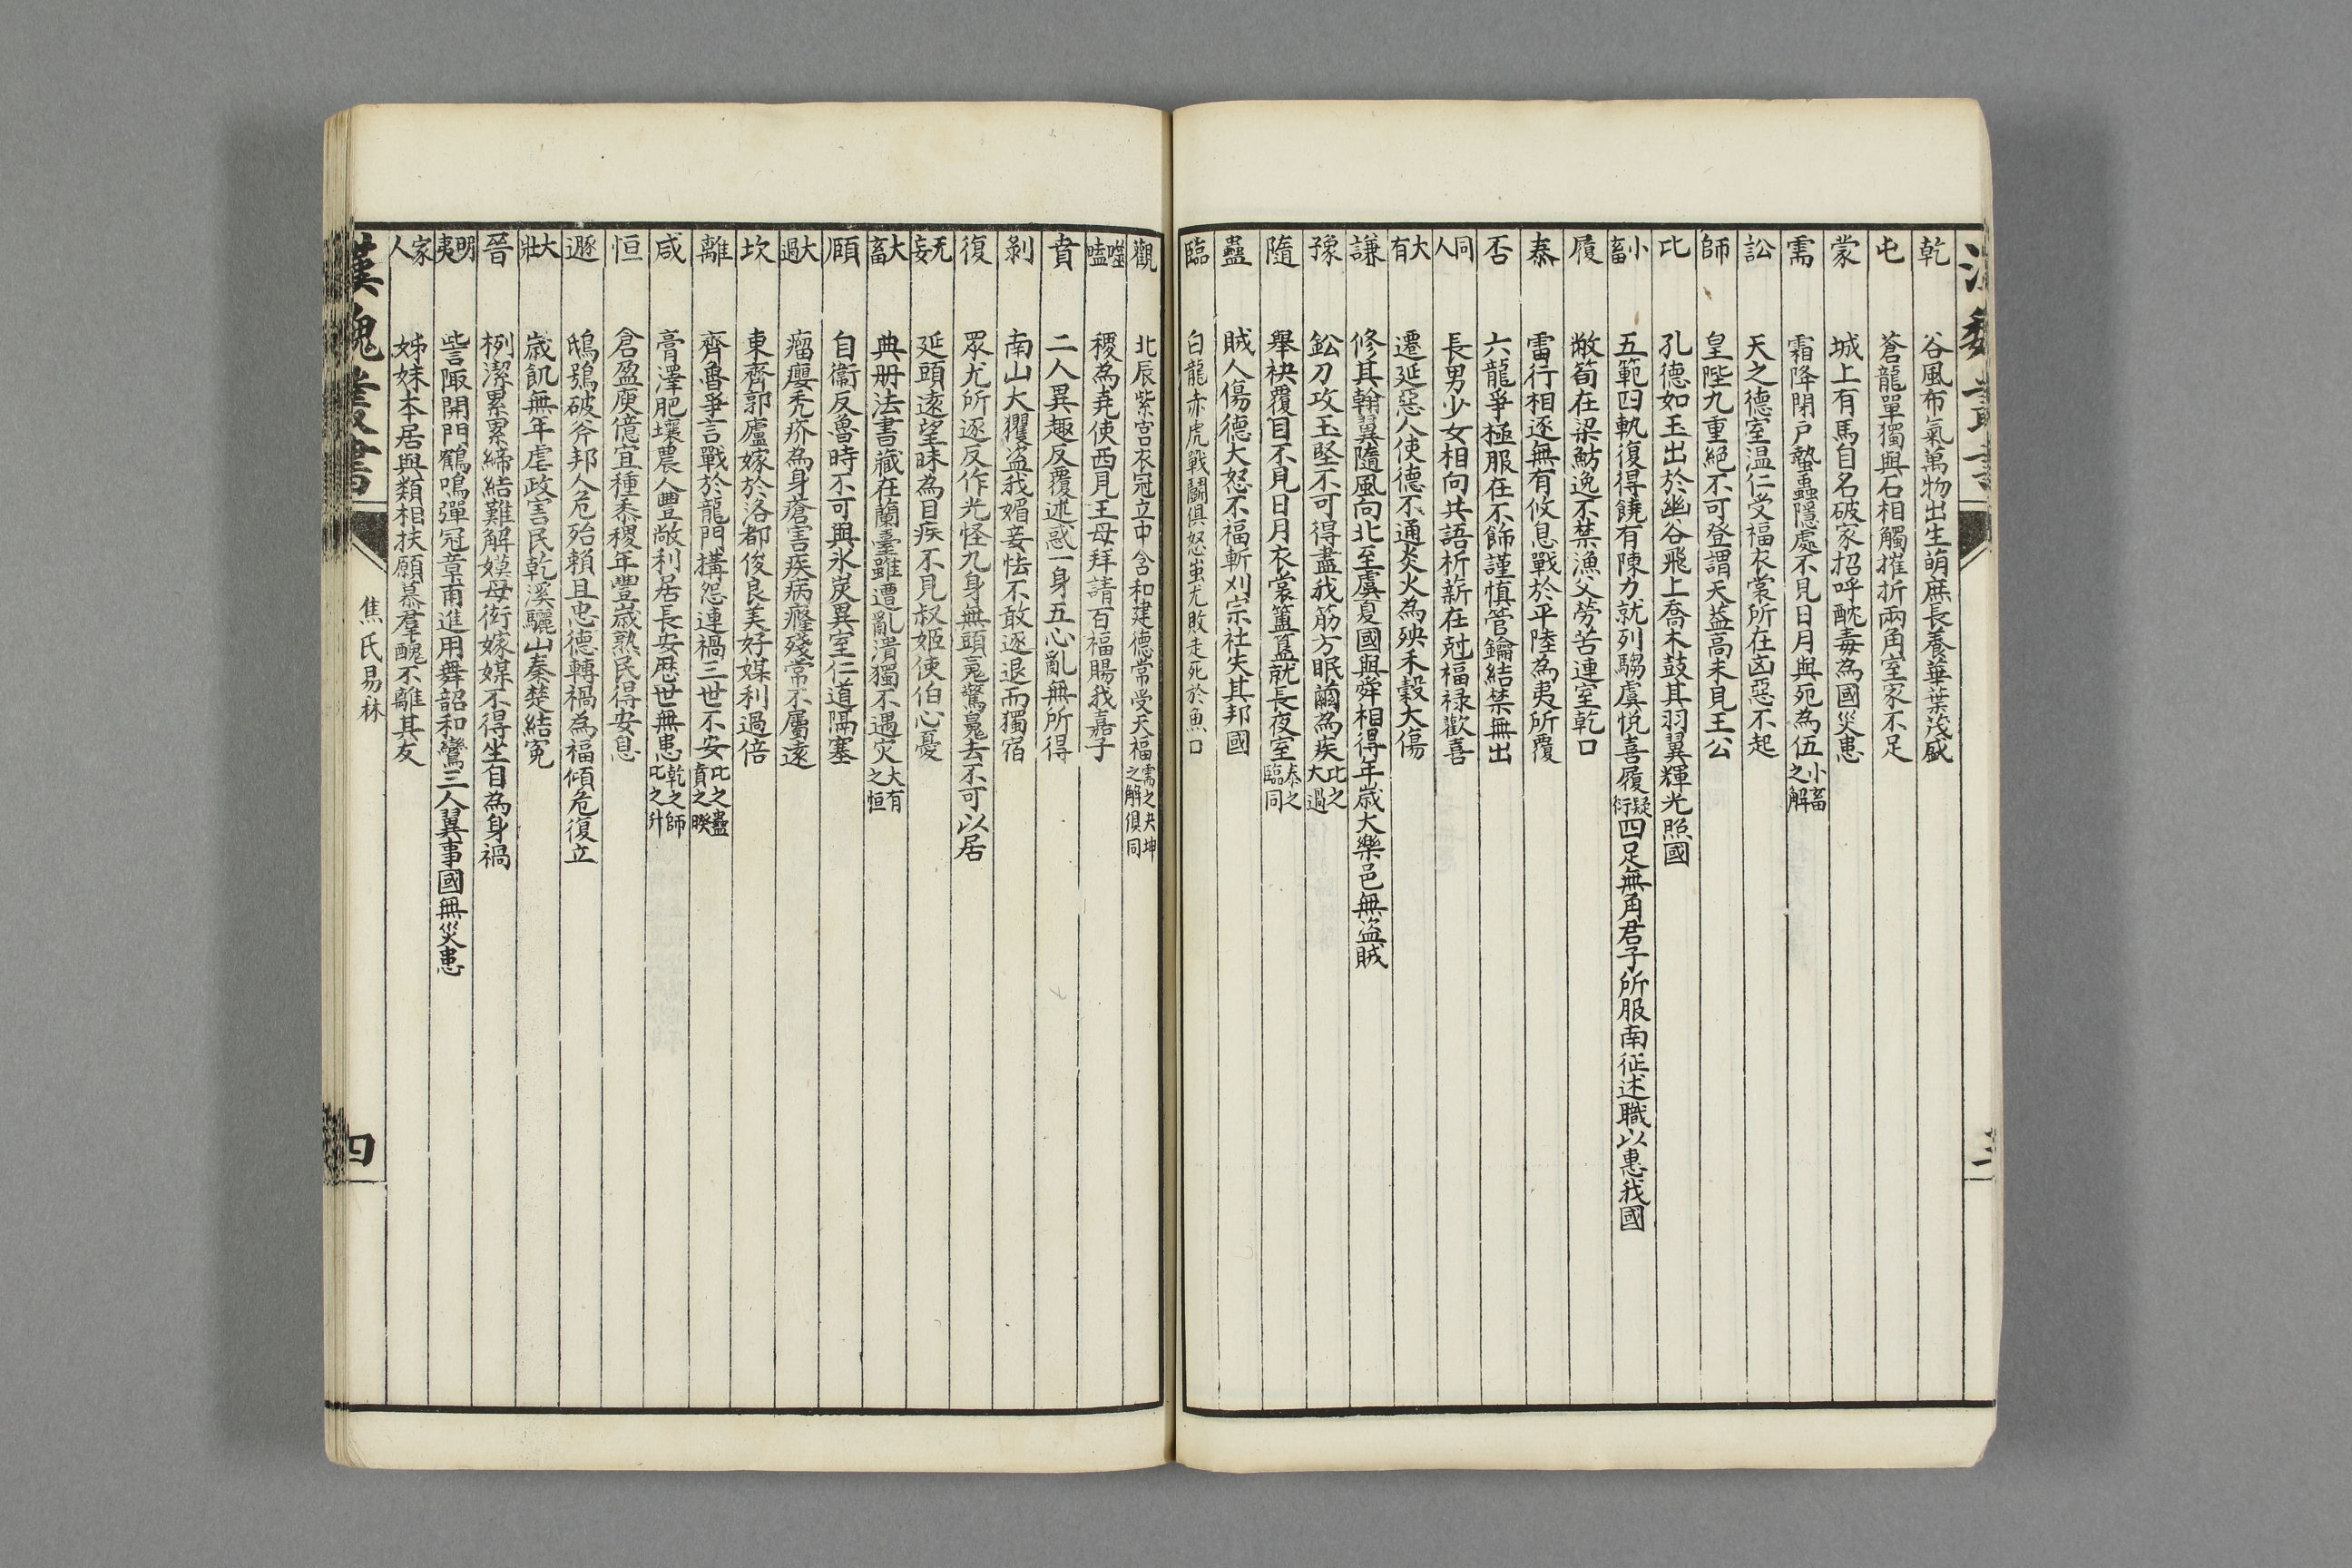 乾 谷風布氣萬物出生萌庶長養華葉茂盛
屯 蒼龍單獨與石相觸摧折兩角室家不足
蒙 城上有馬自名破家招呼酖毒為國災患
需 霜降閉戶蟄蟲隱處不見日月與死為伍小畜之解
訟 天之德室温仁受福衣裳所在凶惡不起
師 皇陛九重絕不可登謂天蓋高未見王公
比 孔德如玉出於幽谷飛上喬木鼓其羽翼輝光照國
小畜 五範四軌復得饒有陳力就列騶虞悅喜履疑衍四足無角君子所服南征述職以惠我國
履 敝笱在梁魴逸不禁漁父勞苦連室乾口
泰 雷行相逐無有攸息戰於平陸為夷所覆
否 六龍爭極服在不飾謹慎管鑰結禁無出
同人 長男少女相向共語析薪在尅福禄歡喜
大有 遷延惡人使德不通炎火為殃禾穀大傷
謙 修其翰翼隨風向北至虞夏國與舜相得年歲大樂邑無盜賊
豫 鈆刀攻玉堅不可得盡我筋力眠繭為疾比之大過
隨 舉袂覆目不見日月衣裳簠簋就長夜室泰之臨同
蠱 賊人傷德大怒不福斬刈宗社失其邦國
臨 白龍赤虎戰鬭俱怒蚩尤敗走死於魚口
觀 北辰紫宮衣冠立中含和建德常受天福需之夬坤之解俱同
噬嗑 稷為堯使西見王母拜請百福賜我嘉子
賁 二人異趣反覆迷惑一身五心亂無所得
剝 南山大玃盜我媚妾怯不敢逐退而獨宿
復 眾尤所逐反作光怪九身無頭䰟驚䰟去不可以居
无妄 延頭遠望眛為目疾不見叔姬使伯心憂
大畜 典冊法書藏在蘭臺雖遭亂潰獨不遇灾大有之恒
頤 自衞反魯時不可與氷炭異室仁道隔塞
大過 瘤癭禿疥為身瘡害疾病癃殘常不屬遠
坎 東齊郭廬嫁於洛都俊良美好媒利過倍
離 齊魯爭言戰於龍門搆怨連禍三世不安比之蠱賁之睽
咸 膏澤肥壤農人豐敞利居長安歷世無患乾之師比之升
恒 倉盈庾億宜種黍稷年豐歲熟民得安息
遯 鴟鴞破斧邦人危殆賴旦忠德轉禍為福傾危復立
大壯 歲飢無年虐政害民乾溪驪山秦楚結冤
晉 栵潔累累締結難解嫫母衒嫁媒不得坐自為身禍
明夷 訾陬開門鶴鳴彈冠章甫進用舞韶和鸞三人翼事國無災患
家人 姊妹本居與類相扶願慕羣醜不離其友
漢魏叢書
焦氏易林
四